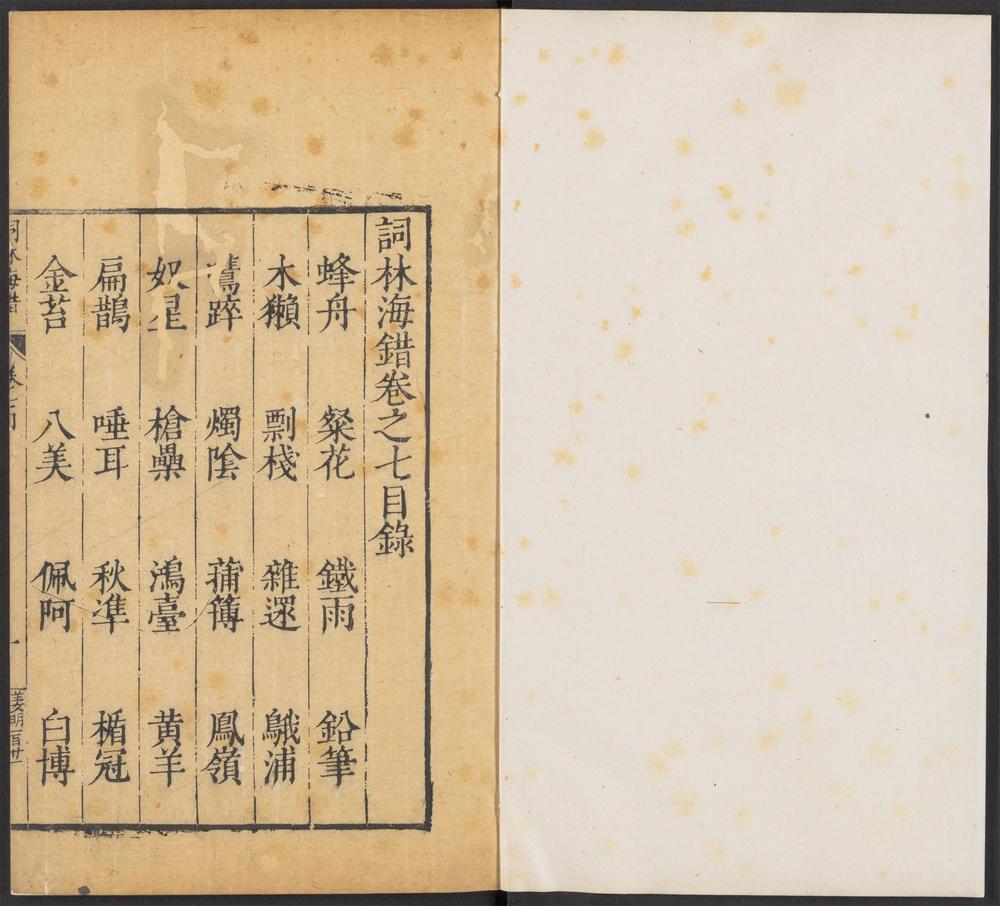 詞林海錯卷之七目錄
蜂舟　粲花　鐵雨　鉛筆
木獺　剽棧　雜遝　鵝浦
踤　燭陰　蒲簿　鳳嶺
槍櫐　鴻臺　黃羊
扁鵲　唾耳　秋準　楯冠
金苔　八美　佩阿　白博
詞林海錯　卷之　一